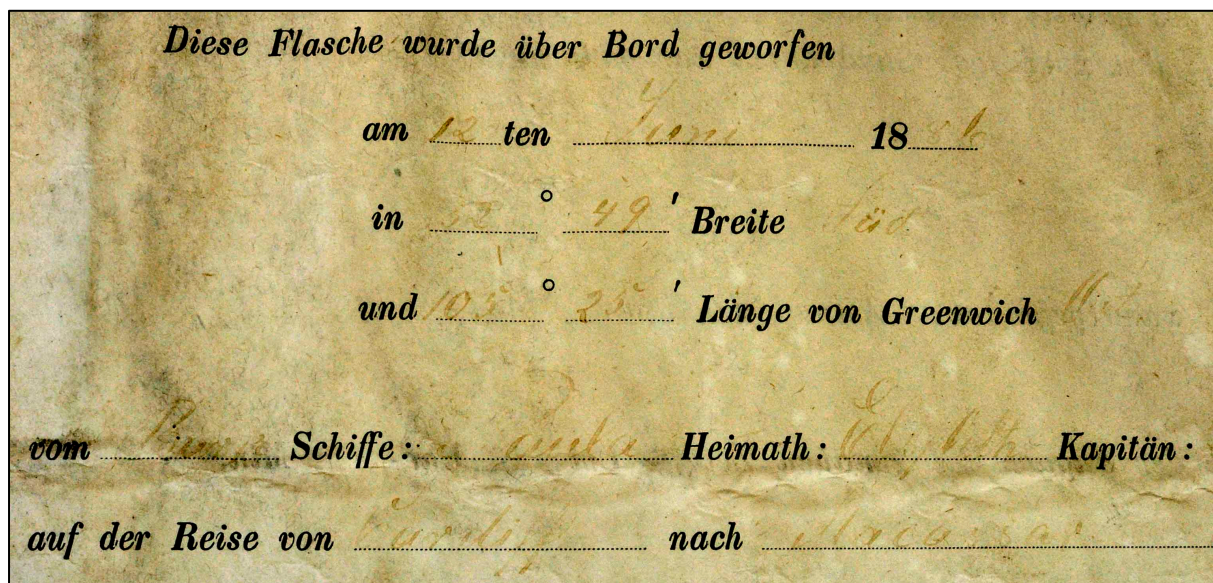 Diese Flasche wurde über Bord geworfen
am 12 ten Juni 1886
in 32° 49' Breite Süd
und 105° 25' Länge von Greenwich Ost
vom Schiffe: Paula Heimath: Elsfleth Kapitän:
auf der Reise von Cardiff nach Macassar